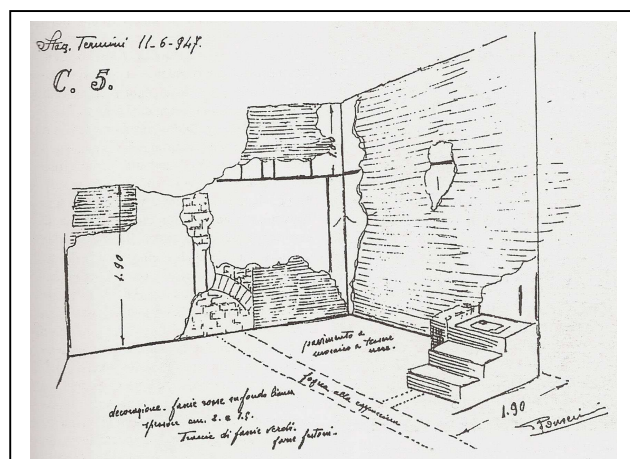 Staz. Termini 11-6-947.
C. 5.
1.90
pavimento a
mosaico a tessere
nere.
fogna alla cappuccina
decorazione - fascie rosse su fondo bianco
spessore cm. 2. e 1.5.
Traccie di fascie verdi.
forse festoni -
1.90